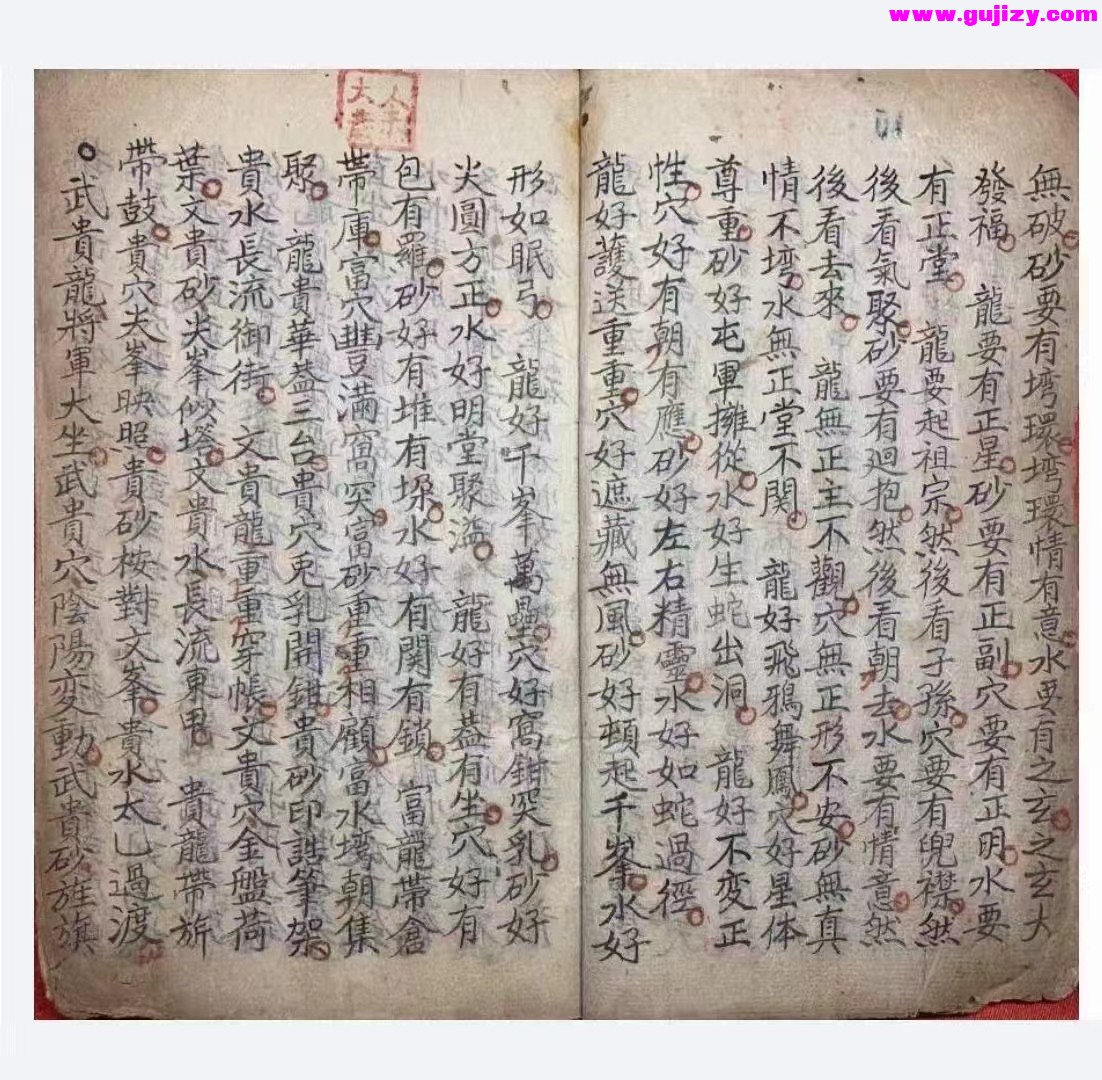 www.gujizy.com
無破砂要有塆環塆環情有意水要有之玄之玄大
發福　龍要有正星砂要有正副穴要有正明水要
有正堂　龍要起祖宗然後看子孫穴要有兜襟然
後看氣聚砂要有廻抱然後看朝去水要有情意然
後看去來　龍無正主不觀穴無正形不安砂無真
情不塆水無正堂不関　龍好飛鴉舞鳳穴好星体
尊重砂好屯軍擁從水好生蛇出洞　龍好不变正
性穴好有朝有應砂好左右精靈水好如蛇過徑
龍好護送重重穴好遮藏無風砂好頓起千峯水好
形如眠弓　龍好千峯萬壘穴好窩鉗突乳砂好
尖圓方正水好明堂聚溢　龍好有葢有坐穴好有
包有羅砂好有堆有垜水好有関有鎖　富龍帶倉
帶庫富穴豐滿窩突富砂重重相顧富水塆朝集
聚　龍貴華葢三台貴穴兎乳開鉗貴砂印誥筆架
貴水長流御街　文貴龍重重穿帳文貴穴金盤荷
葉文貴砂尖峯似塔文貴水長流東甩　貴龍帶旂
帶鼓貴穴尖峯映照貴砂桉對文峯貴水太乚過渡
武貴龍將軍大坐武貴穴陰陽变動武貴砂旌旗